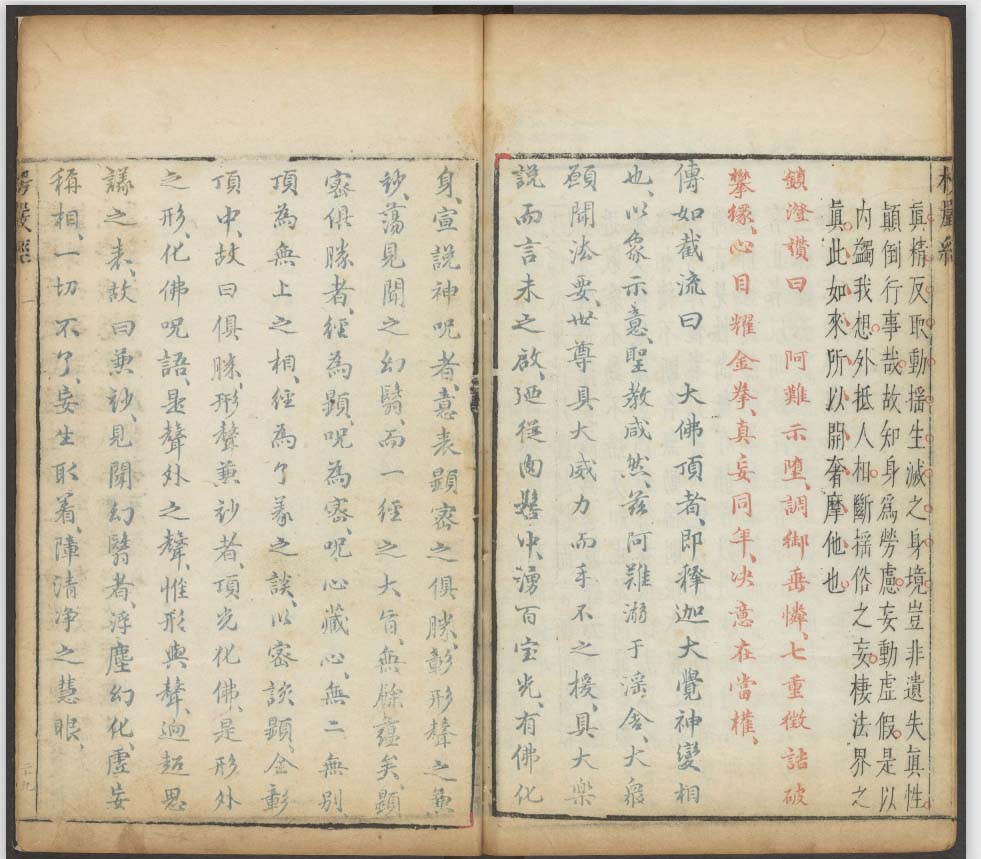 楞嚴經
眞精反取動揺生滅之身境豈非遺失眞性
顚倒行事哉故知身爲勞慮妄動虛假是以
内蠲我想外抵人相斷揺俗之妄棲法界之
眞此如來所以開奢摩他也
鎮澄讃曰 阿難示墮、調御垂憐、七重徴詰破
攀縁、心目耀金拳、真妄同年、决意在當權、
傳如截流曰 大佛頂者、即釋迦大覺神變相
也、以象示意、聖教咸然、兹阿難溺于滛舍、大衆
願聞法要、世尊具大威力而手不之援、具大樂
説而言未之啟、廼從肉髻中、湧百宝光、有佛化
身、宣説神呪者、意表顯密之俱勝、彰形聲之兼
玅、蕩見聞之幻翳、而一經之大旨、無餘藴矣、顯
密俱勝者、經為顯、呪為密、呪心藏心、無二無别
頂為無上之相、經為了義之談、以密談顯、金彰
頂中、故曰俱勝、形聲兼玅者、頂光化佛、是形外
之形、化佛呪語、是聲外之聲、惟形與聲、逈超思
議之表、故曰兼玅、見聞幻翳者、浮塵幻化、虛妄
稱相、一切不了、妄生取着、障清浄之慧眼、
楞嚴經 一
二九